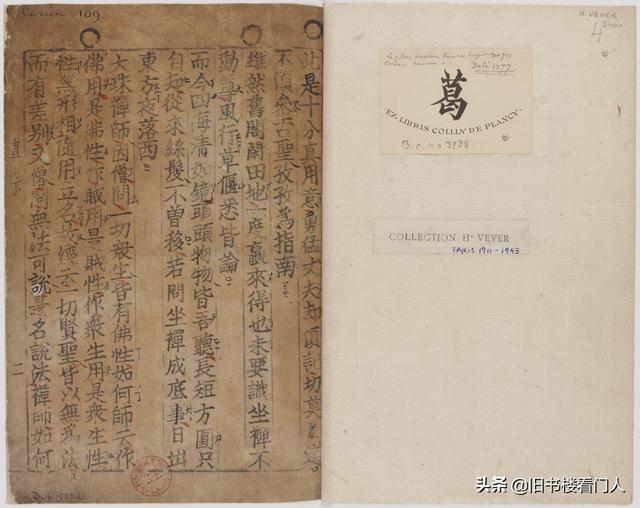 Coréen 109
此是十分真用意勇猛丈夫却須記切莫
不須叅古聖孜孜爲指南
雖然舊閣閑田地一度贏來得也未要識坐禪不
動尊風行草偃悉皆論
而今四海清如鏡頭頭物物皆吾聽長短方圓只
自知從來絲髮不曾移若問坐禪成底事日出
東方夜落西
大珠禪師因僧問一切衆生皆有佛性如何師云作
佛用是佛性作賊用是賊性作衆生用是衆生性
性無形相隨用立名故經云一切賢聖皆以無爲法
而有差別又僧問無法可說是名說法禪師如何
直指下
二
H. VEVER
4
Le plus ancien livre imprimé
Coréen connu
Date 1377
葛
·EZ·LIBRIS COLLIN DE PLANCY·
B. C. no 3738
COLLECTION Hri VEVER
PARIS 1911-1943
头条 @旧书楼看门人